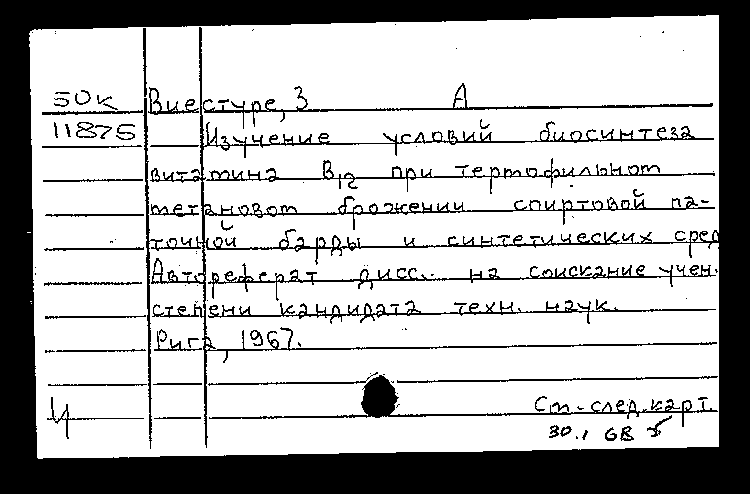 50к Виестуре, З А
11875 Изучение условий биосинтеза
витамина B12 при термофильном
метановом брожении спиртовой па-
точной барды и синтетических сред
Автореферат дисс. на соискание учен.
степени кандидата техн. наук.
Рига, 1967.
Ч См. след. карт.
30.1 GB